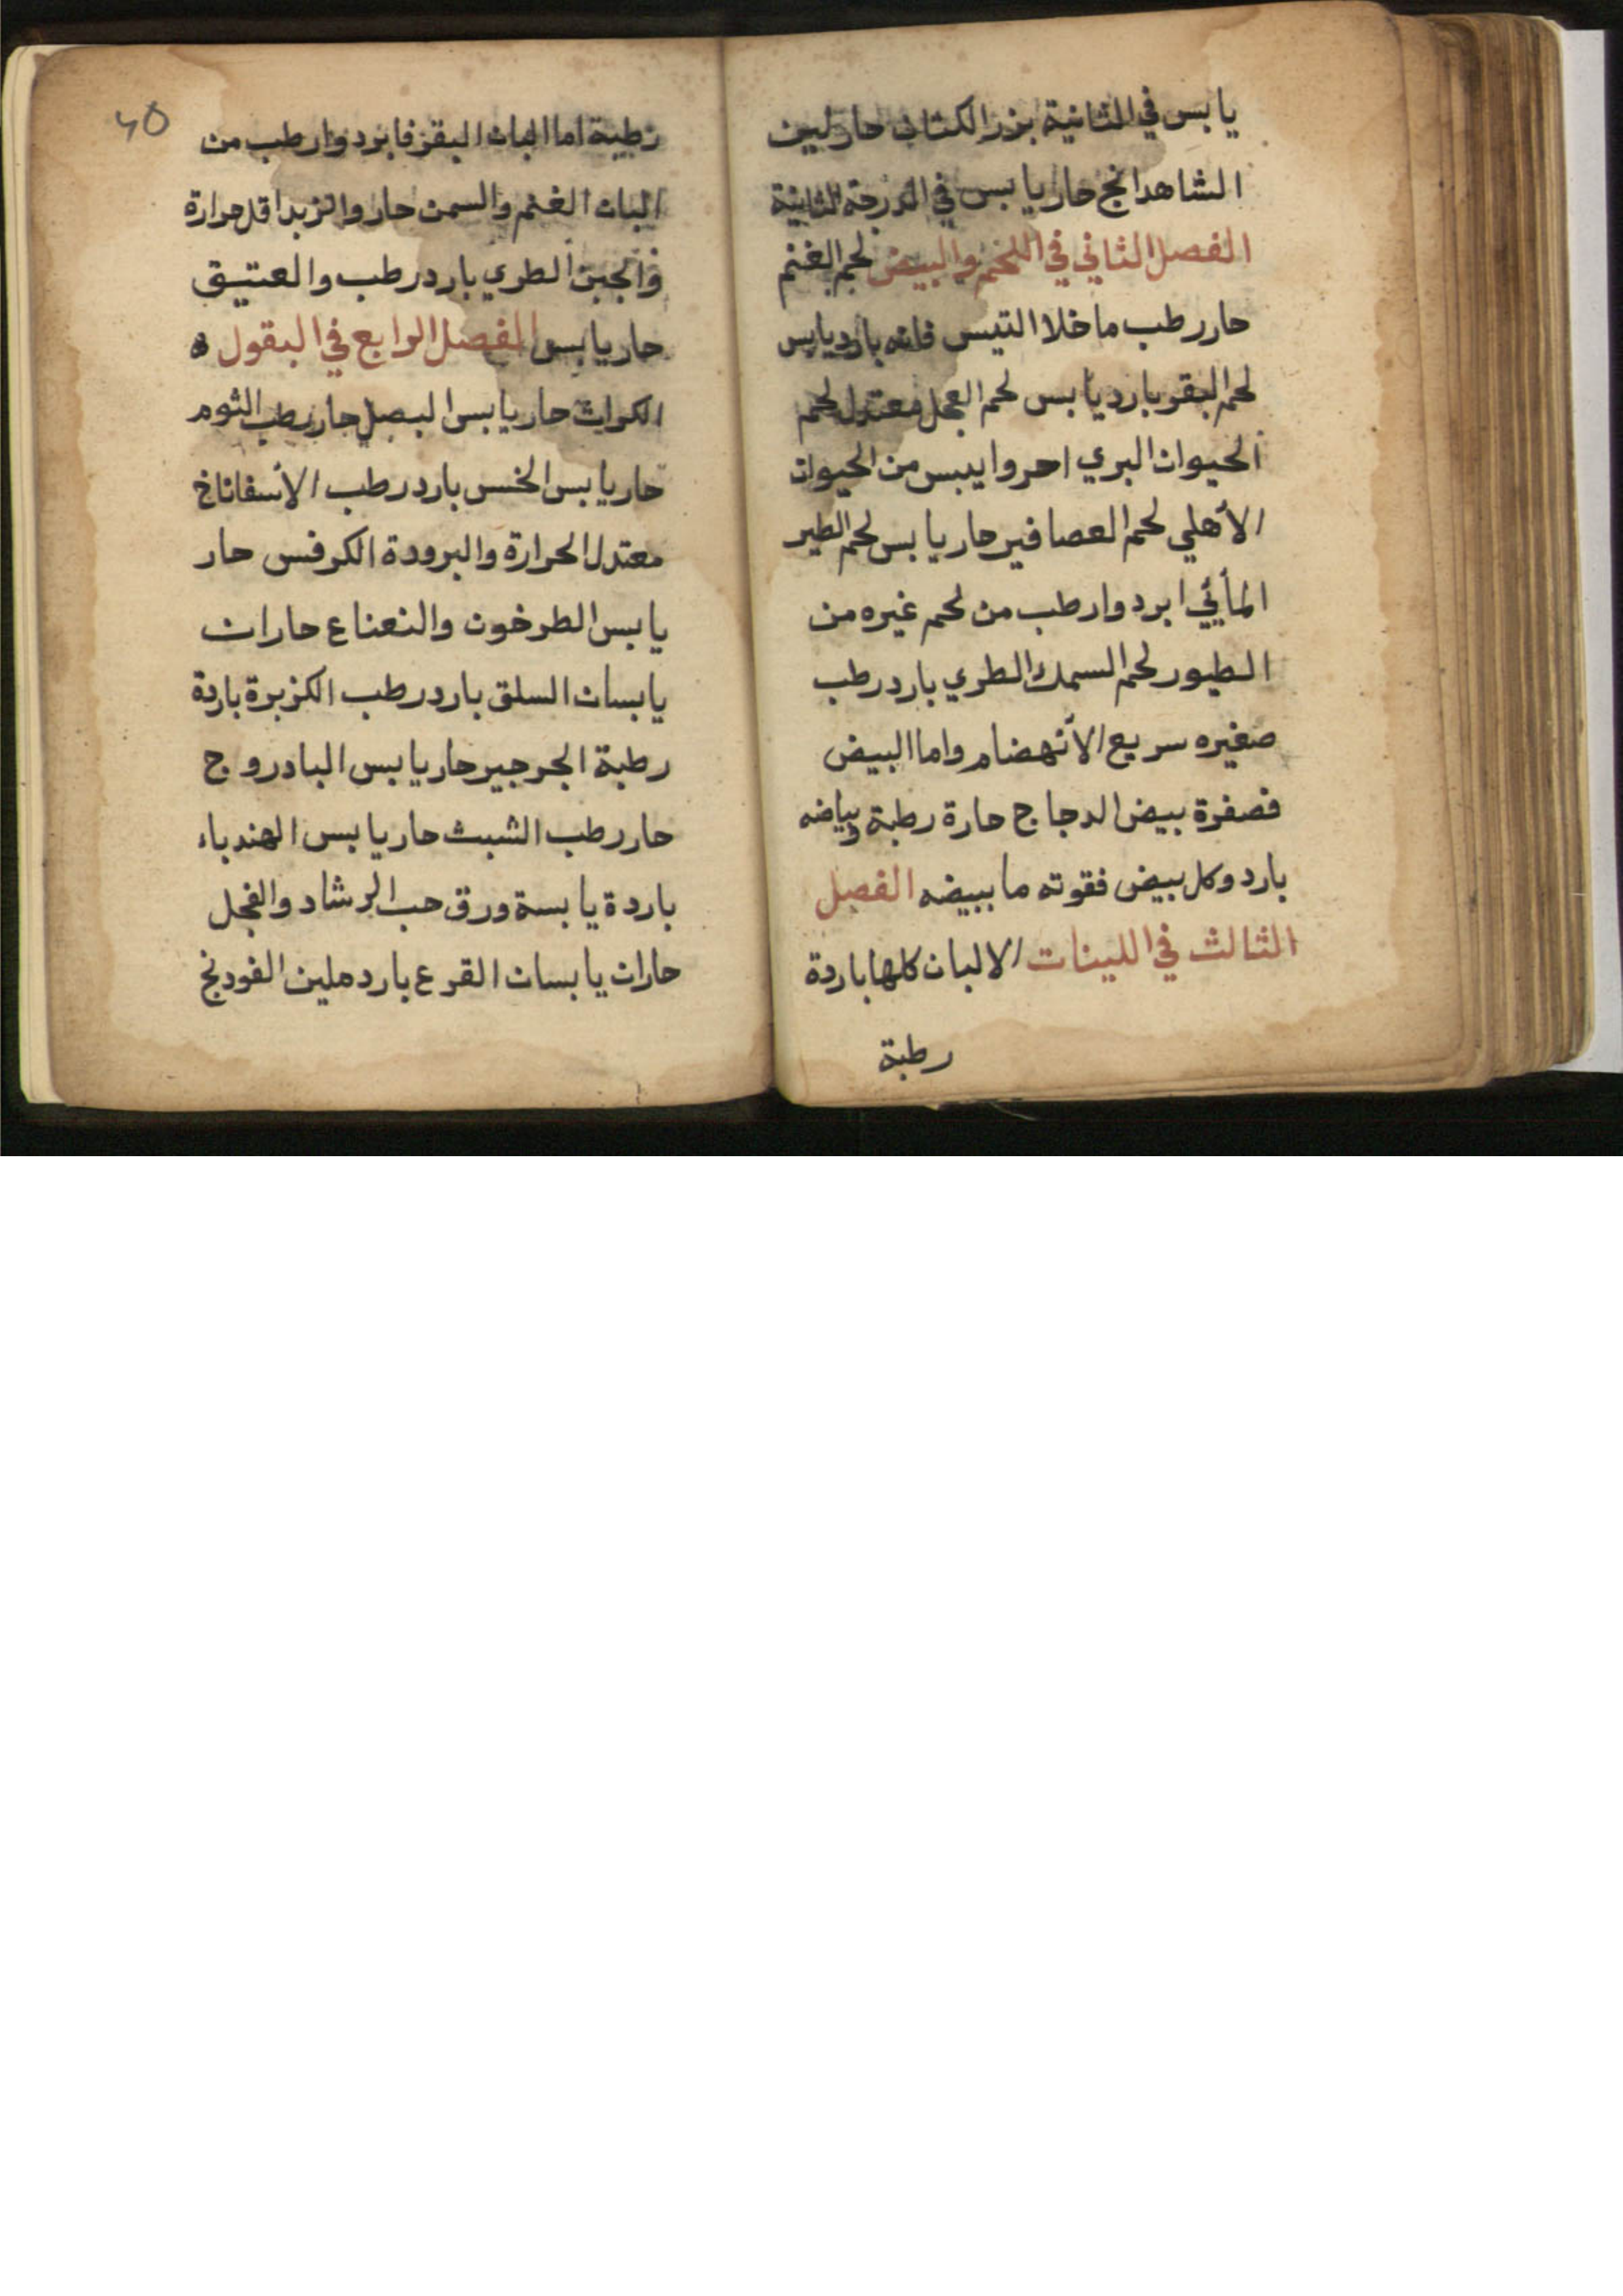 يابس في الثانية بزر الكتان حار لين
الشاهدانج حار يابس في الدرجة الثانية
الفصل الثاني في اللحم والبيض لحم الغنم
حار رطب ما خلا التيس فانه بارد يابس
لحم البقر بارد يابس لحم العجل معتدل لحم
الحيوان البري احر وايبس من الحيوان
الأهلي لحم العصافير حار يابس لحم الطير
المأئي ابرد وارطب من لحم غيره من
الطيور لحم السمك الطري بارد رطب
صغيره سريع الأنهضام واما البيض
فصفرة بيض الدجاج حارة رطبة وبياضه
بارد وكل بيض فقوته ما ببيضه الفصل
الثالث في اللبنات الالبان كلها باردة
رطبة
40
رطبة اما البان البقر فابرد وارطب من
البان الغنم والسمن حار والزبد اقل حرارة
والجبن الطري بارد رطب والعتيق
حار يابس الفصل الرابع في البقول ه
الكراث حار يابس البصل حار رطب الثوم
حار يابس الخس بارد رطب الأسفاناخ
معتدل الحرارة والبرودة الكرفس حار
يابس الطرخون والنعناع حاران
يابسان السلق بارد رطب الكزبرة باردة
رطبة الجرجير حار يابس البادروج
حار رطب الشبث حار يابس الهندباء
باردة يابسة ورق حب الرشاد والفجل
حاران يابسان القرع بارد ملين الفودنج